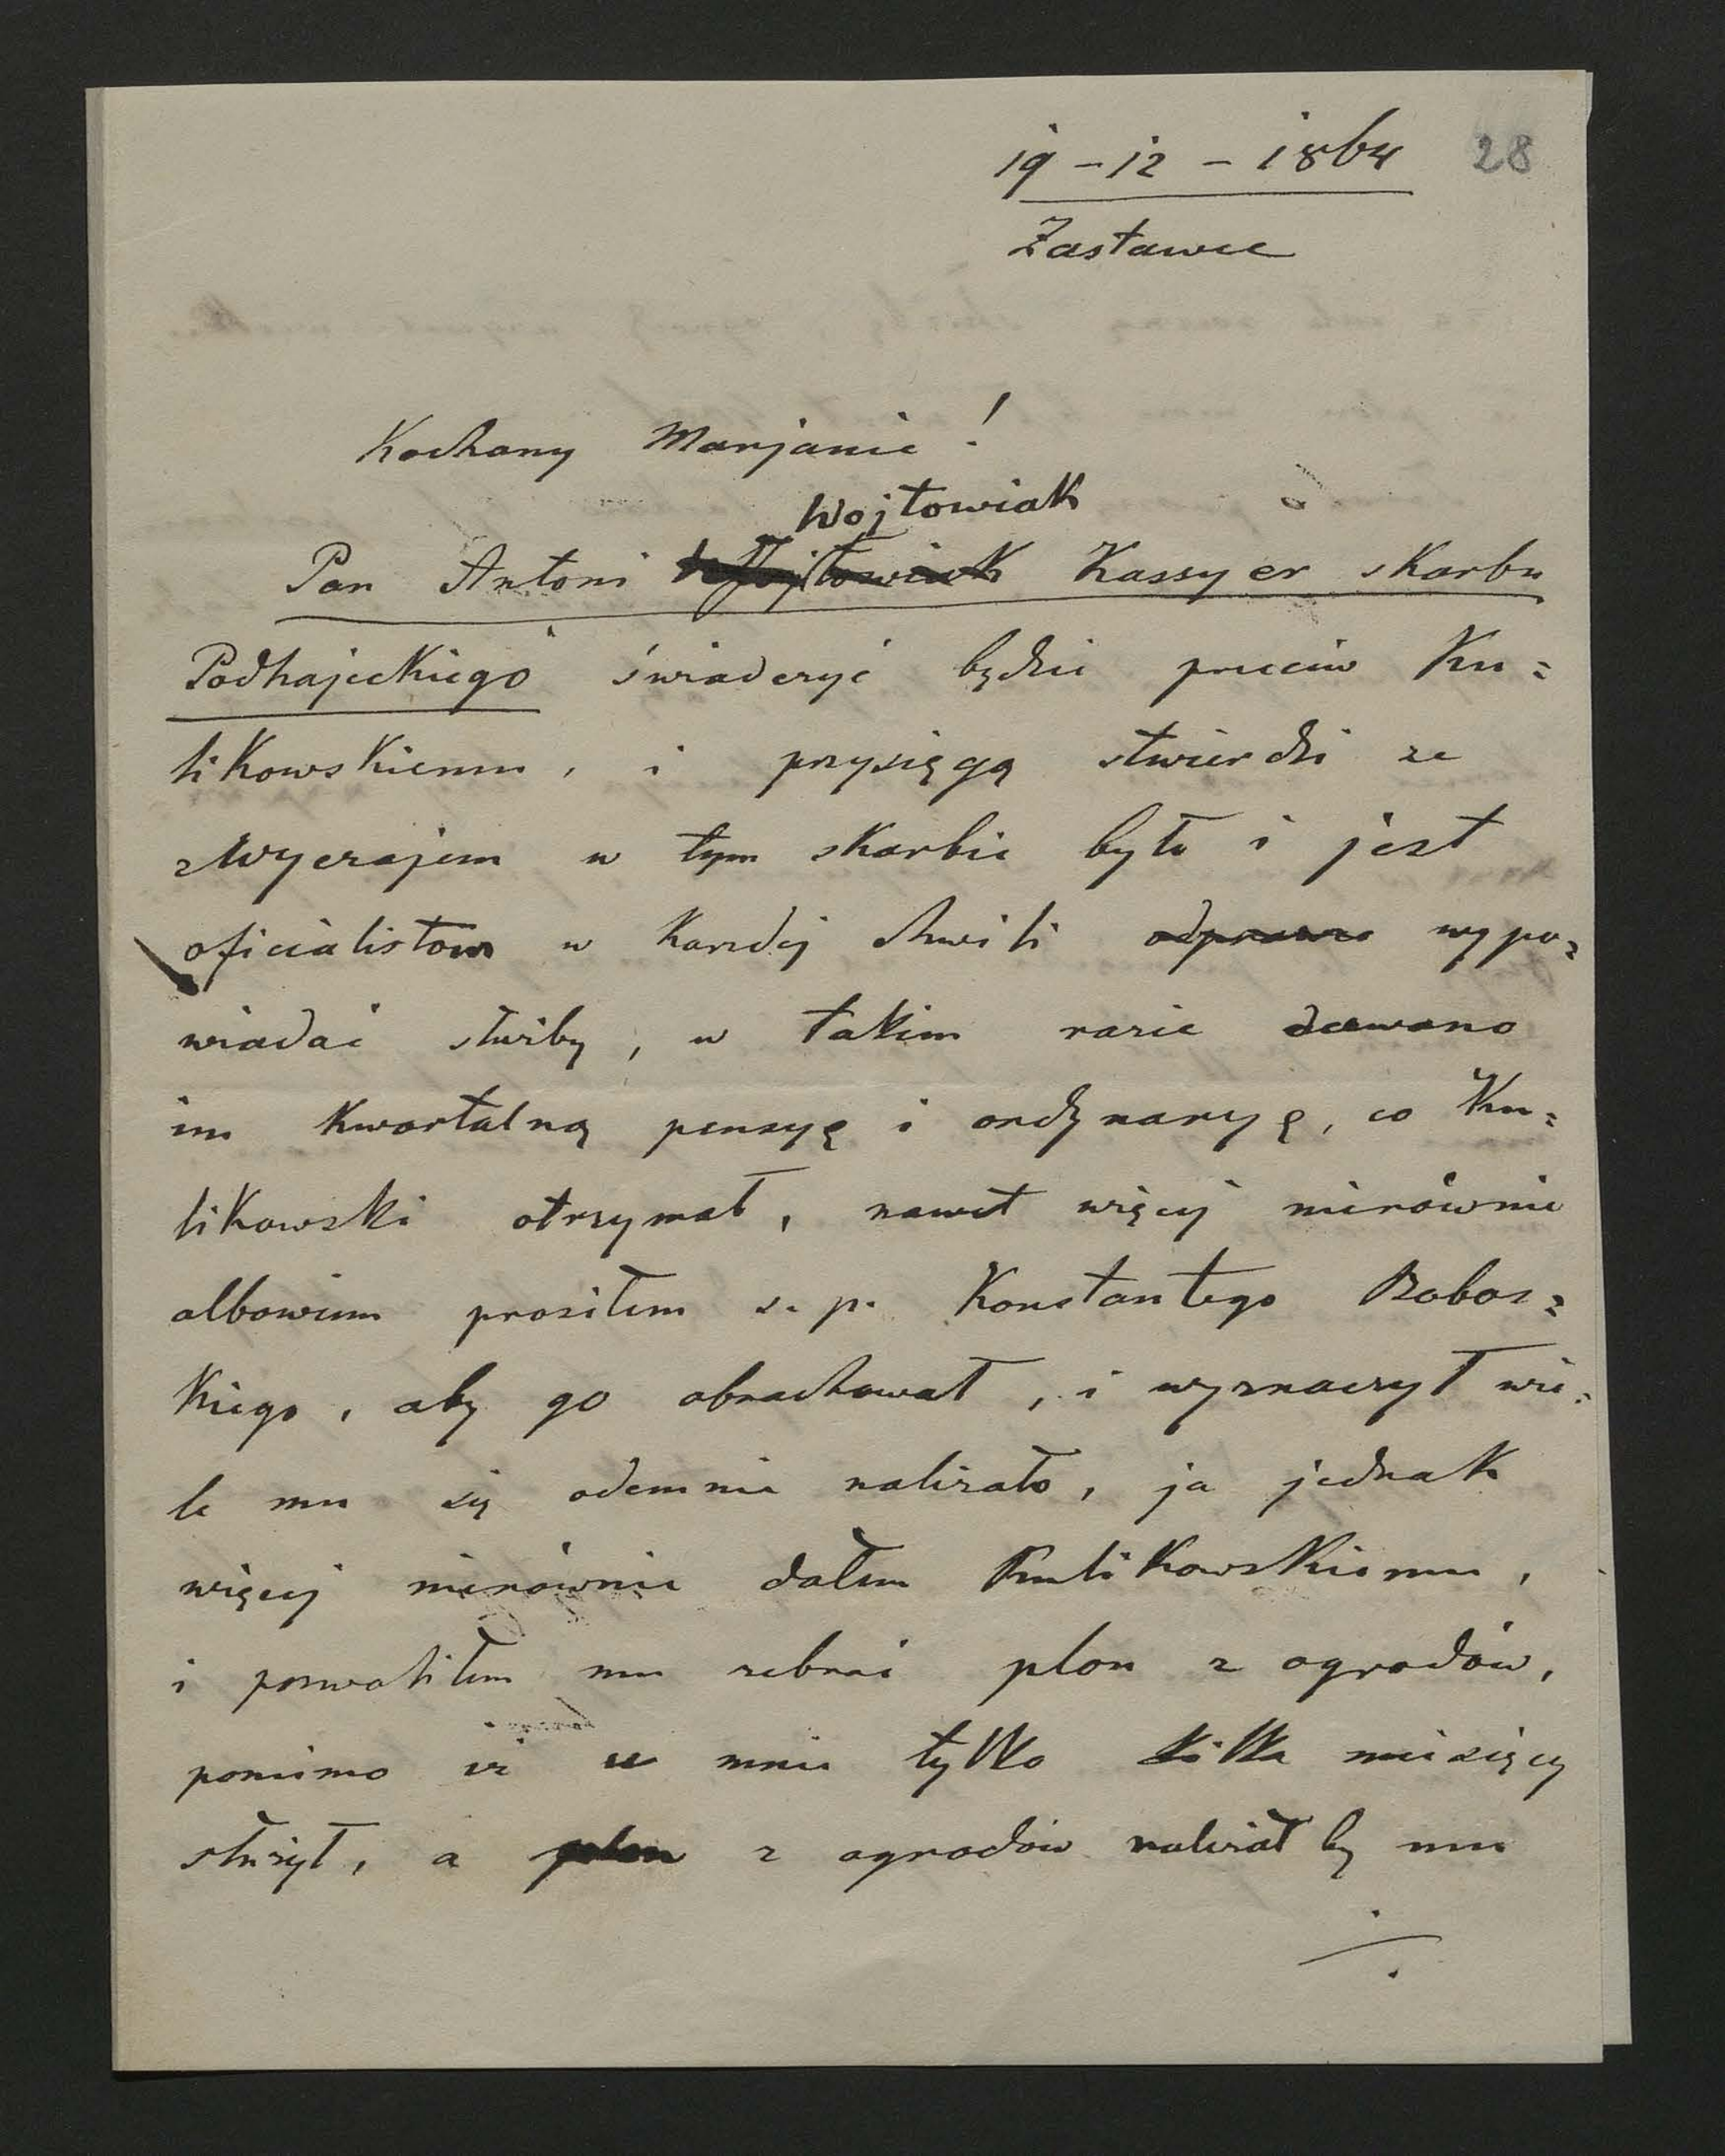 19 - 12 - 1864 28
Zastawce
Kochany Marjanie!
Wojtowiak
Pan Antoni Kassyer skarbu
Podhajeckiego świadczyć będzie przeciw Ku=
likowskiemu, i przysięgą stwierdzi ze
zwyczajem w tym skarbie było i jest
oficialistom w kazdej chwili odprawe wypo=
wiadać służby, w takim razie dawano
im kwartalną pensyę i ordynaryę, co Ku=
likowski otrzymał, nawet więcej nierównie
albowiem prosiłem s. p. Konstantego Bobos=
kiego, aby go obrachował, i wyznaczył wie=
le mu się odemnie należało, ja jednak
więcej nierównie dałem Kulikowskiemu,
i pozwoliłem mu zebrać plon z ogrodów,
pomimo iż u mnie tylko kilka miesięcy
służył, a plon z ogrodów należał by mu
./.